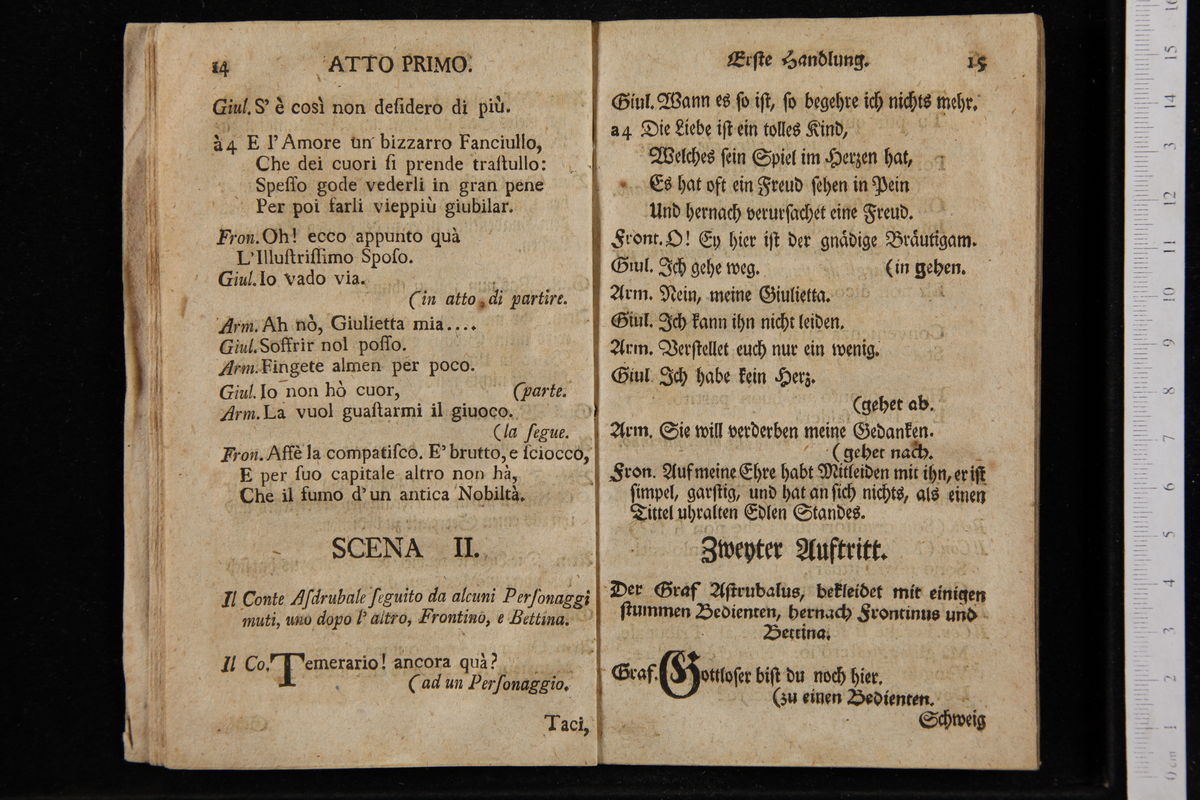 14 ATTO PRIMO.
Giul. S' è così non deſidero di più.
à 4 E l'Amore un bizzarro Fanciullo,
Che dei cuori ſi prende traſtullo:
Speſſo gode vederli in gran pene
Per poi farli vieppiù giubilar.
Fron. Oh! ecco appunto quà
L'Illuſtriſſimo Spoſo.
Giul. Io vado via.
(in atto di partire.
Arm. Ah nò, Giulietta mia....
Giul. Soffrir nol poſſo.
Arm. Fingete almen per poco.
Giul. Io non hò cuor, (parte.
Arm. La vuol guaſtarmi il giuoco.
(la ſegue.
Fron. Affè la compatiſco. E' brutto, e ſciocco,
E per ſuo capitale altro non hà,
Che il fumo d'un antica Nobiltà.
SCENA II.
Il Conte Aſdrubale ſeguito da alcuni Perſonaggi
muti, uno dopo l'altro, Frontino, e Bettina.
Il Co. Temerario! ancora quà?
(ad un Perſonaggio.
Taci,
Erſte Handlung. 15
Giul. Wann es ſo iſt, ſo begehre ich nichts mehr.
a 4 Die Liebe iſt ein tolles Kind,
Welches ſein Spiel im Herzen hat,
Es hat oft ein Freud ſehen in Pein
Und hernach verurſachet eine Freud.
Front. O! Ey hier iſt der gnädige Bräutigam.
Giul. Ich gehe weg. (in gehen.
Arm. Nein, meine Giulietta.
Giul. Ich kann ihn nicht leiden.
Arm. Verſtellet euch nur ein wenig.
Giul Ich habe kein Herz.
(gehet ab.
Arm. Sie will verderben meine Gedanken.
(gehet nach.
Fron. Auf meine Ehre habt Mitleiden mit ihn, er iſt
ſimpel, garſtig, und hat an ſich nichts, als einen
Tittel uhralten Edlen Standes.
Zweyter Auftritt.
Der Graf Aſtrubalus, bekleidet mit einigen
ſtummen Bedienten, hernach Frontinus und
Bettina.
Graf. Gottloſer biſt du noch hier.
(zu einen Bedienten.
Schweig